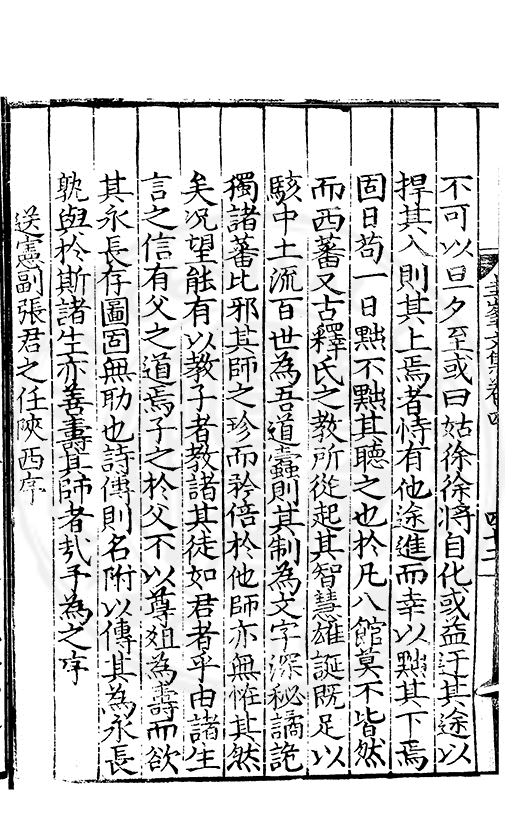 不可以旦夕至或曰姑徐徐將自化或益迂其途以
捍其入則其上焉者恃有他途進而幸以黜其下焉
固日茍一日黜不黜其聽之也於凡八館莫不皆然
而西蕃又古釋氏之教所從起其智慧雄誕既足以
駭中土流百世為吾道蠹則其制為文字深秘譎詭
獨諸蕃比邪其師之珍而矜倍於他師亦無恠其然
矣况望能有以教子者教諸其徒如君者乎由諸生
言之信有父之道焉子之於父不以尊爼為壽而欲
其永長存圖固無助也詩傳則名附以傳其為永長
孰與於斯諸生亦善壽其師者㢤予為之序
送憲副張君之任陝西序
文集卷四
四十二